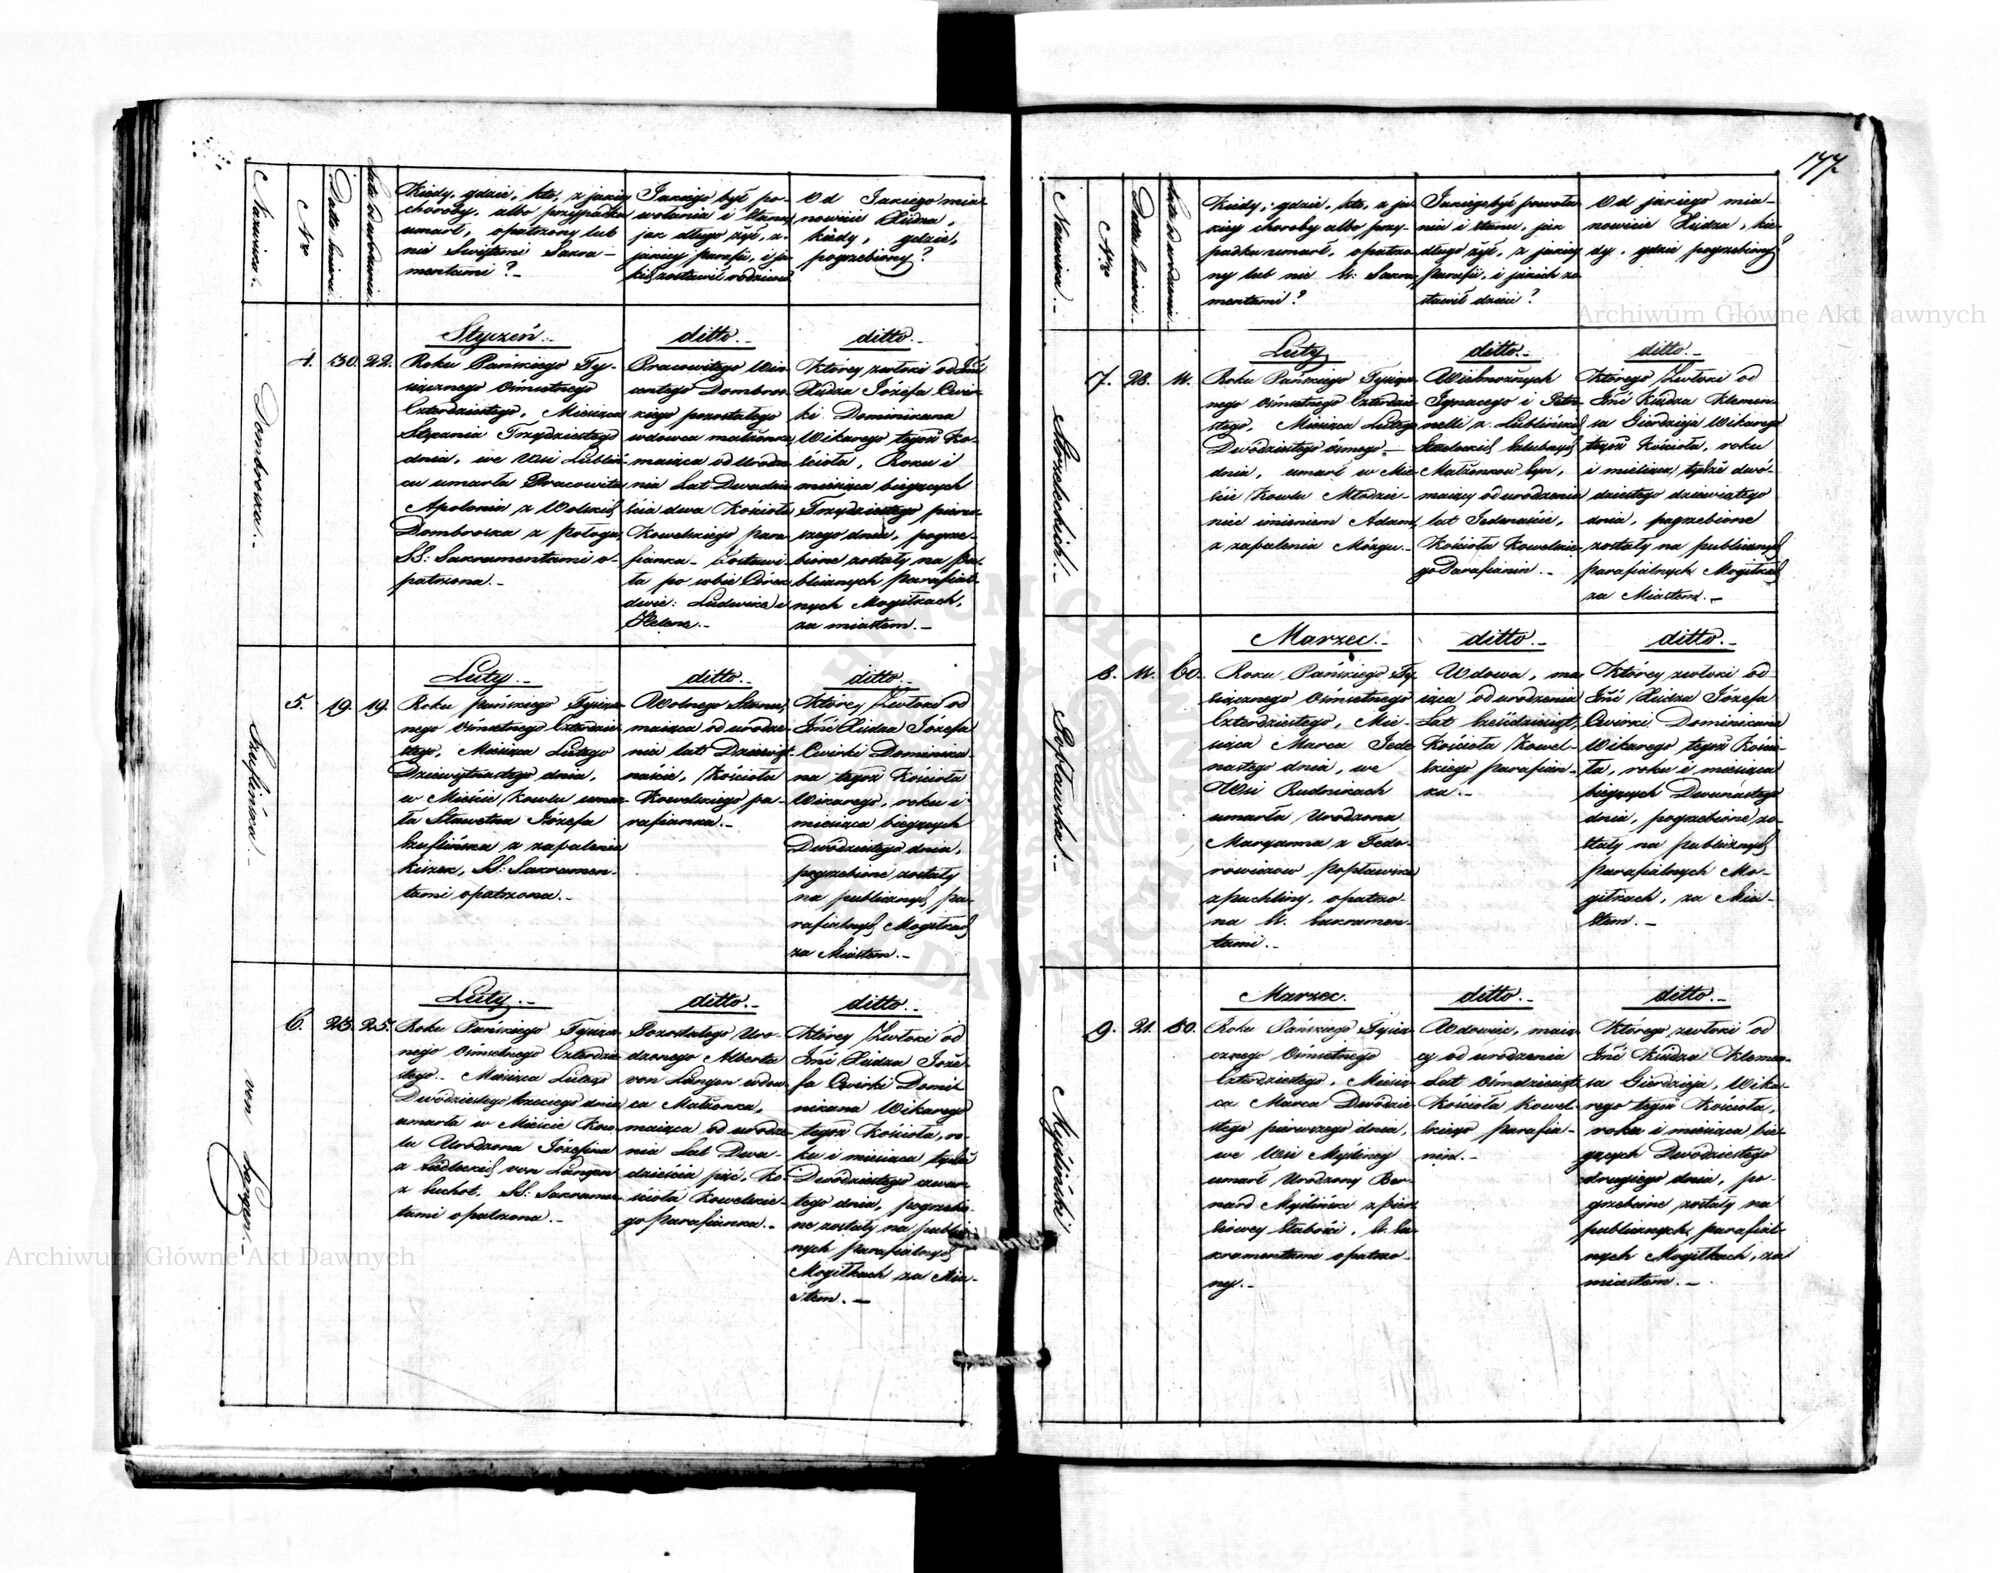 177.
Nazwiska.
Nro
Datta śmierci.
Kiedy, gdzie, kto, z jakiey
choroby, albo przypadku
umarł, opatrzony lub
nie Swiętemi Sakra-
mentami?-
Jakiego był po-
wołania i stanu,
jak długo żył, z
jakiey parafii, i ja
kie zostawił rodzicow
Od Jakiego mia-
nowicie Xiędza,
kiedy, gdzie,
pogrzebiony?
Dombroska.-
4. 30. 22.
Styczeń.-
Roku Pańskiego Ty-
siącznego Ośmsetnego
Czterdziestego, Miesiąca
Stycznia Trzydziestego
dnia, we Wsi Lubliń-
cu umarła Pracowita
Apolonia z Wolskich
Dombroska z połogu,
SS: Sakramentami o-
patrzona.-
ditto.-
Pracowitego Win-
centego Dombros-
kiego pozostałego
wdowca małżonka
maiąca od urodze-
nia Lat Dwadzie
ścia dwa Kościoła
Kowelskiego para
fianka.- Zostawi-
ła po sobie Córek
dwie: Ludwikę i
Helenę.-
ditto.-
Którey zwłoki od Jmć
Xiędza Józefa Cwir-
ki Dominikana
Wikarego tegoż Ko-
ścioła, Roku i
miesiąca bieżących
Trzydziestego pierw-
szego dnia, pogrze-
bione zostały na pu-
blicznych parafial-
nych Mogiłkach,
za miastem.-
Szuflińska.-
5. 19. 19.
Luty.-
Roku Pańskiego Tysiącz-
nego Ośmsetnego Czterdzie-
stego, Miesiąca Lutego
Dziewiętnastego dnia,
w Mieście Kowlu umar-
ła Sławetna Józefa
Szuflińska z zapalenia
kiszek, SS: Sakramen-
tami opatrzona.-
ditto.-
Wolnego Stanu,
maiąca od urodze-
nia lat Dziewięt-
naście, Kościoła
Kowelskiego pa-
rafianka.-
ditto.-
Którey Zwłoki od
Jmć Xiędza Józefa
Cwirki Dominika-
na tegoż Kościoła
Wikarego, roku i
miesiąca bieżących
Dwódziestego dnia,
pogrzebione zostały
na publicznych pa-
rafialnych Mogiłkach
za Miastem.-
von Langen.-
6. 23. 25.
Luty.-
Roku Pańskiego Tysiącz-
nego Ośmsetnego Czterdzie-
stego. Miesiąca Lutego
Dwódziestego trzeciego dnia
umarła w Mieście Kow-
lu Urodzona Józefina
z Siedleckich von Langen
z Suchot, SS: Sakramen-
tami opatrzona.-
ditto.-
Pozostałego Uro-
dzonego Alberta
von Langen wdow-
ca Małżonka,
maiąca od urodze-
nia Lat Dwa-
dzieścia pięć, Ko-
ścioła Kowelskie-
go Parafianka.-
ditto.-
Którey Zwłoki od
Jmć Xiędza Józe-
fa Cwirki Domi-
nikana Wikarego
tegoż Kościoła, ro-
ku i miesiąca tychże
Dwódziestego czwar-
tego dnia, pogrzebio-
ne zostały na publicz
nych parafialnych
Mogiłkach za Mia-
stem.-
Nazwiska.-
Nro
Datta śmierci.-
Kiedy, gdzie, kto, z ja
kiey choroby albo przy-
padku umarł, opatrzo-
ny lub nie S. Sakra-
mentami?
Jakiego był powoła-
nia i stanu, jak
długo żył, z jakiey
Parafii, i jakich zo
stawił dzieci?
Od jakiego mia-
nowicie Xiędza, kie-
dy, gdzie pogrzebiony?
Strzeleckich.-
7. 28. 11.
Luty
Roku Pańskiego Tysiącz-
nego Ośmsetnego Czterdzie-
stego, Miesiąca Lutego
Dwódziestego ósmego.-
dnia, umarł w Mie-
ście Kowlu Młodzie-
niec imieniem Adam,
z zapalenia Mózgu.-
ditto.-
Wielmożnych
Ignacego i Petro-
nelli z Lublińskich
Strzeleckich szlubnych
Małżonkow Syn,
maiący od urodzenia
lat Jedenaście,
Kościoła Kowelskie-
go Parafianin.-
ditto.-
Którego Zwłoki od
Jmć Xiędza Klemen-
sa Gierdzieja Wikarego
tegoż Kościoła, roku
i miesiąca tychże dwó-
dziestego dziewiątego
dnia, pogrzebione
zostały na publicznych
parafialnych Mogiłkach
za Miastem.-
Popławska.-
8. 11. 60.
Marzec.-
Roku Pańskiego Ty-
siącznego Ośmsetnego
Czterdziestego, Mie-
siąca Marca Jede-
nastego dnia, we
Wsi Rudnikach
umarła Urodzona
Maryanna z Fedo-
rowiczow Popławska
z puchliny, opatrzo-
na S. Sakramen-
tami.-
ditto.-
Wdowa, ma-
iąca od urodzenia
Lat Sześdziesiąt,
Kościoła Kowel-
skiego parafian-
ka.-
ditto.-
Którey zwłoki od
Jmć Xiędza Józefa
Cwirki Dominikana
Wikarego tegoż Kościo-
ła, roku i miesiąca
bieżących Dwunastego
dnia, pogrzebione zo-
stały na publicznych
parafialnych Mo-
giłkach, za Mia-
stem.-
Myśliński
9. 21. 80.
Marzec.
Roku Pańskiego Tysią-
cznego Ośmsetnego
Czterdziestego, Miesią-
ca Marca Dwódzie-
stego pierwszego dnia,
we Wsi Myśliney
umarł Urodzony Ber-
nard Myśliński z pier-
siowey słabości, S. Sa-
kramentami opatrzo-
ny.-
ditto.-
Wdowiec, maią-
cy od urodzenia
Lat Ośmdziesiąt
Kościoła Kowel-
skiego parafia-
nin.-
ditto.-
Którego zwłoki od
Jmć Xiędza Klemen-
sa Gierdzieja, Wika-
rego tegoż Kościoła,
roku i miesiąca bie-
żących Dwódziestego
drugiego dnia, po-
grzebione zostały na
publicznych parafial-
nych Mogiłkach, za
miastem.-
Archiwum Główne Akt Dawnych
Archiwum Główne Akt Dawnych